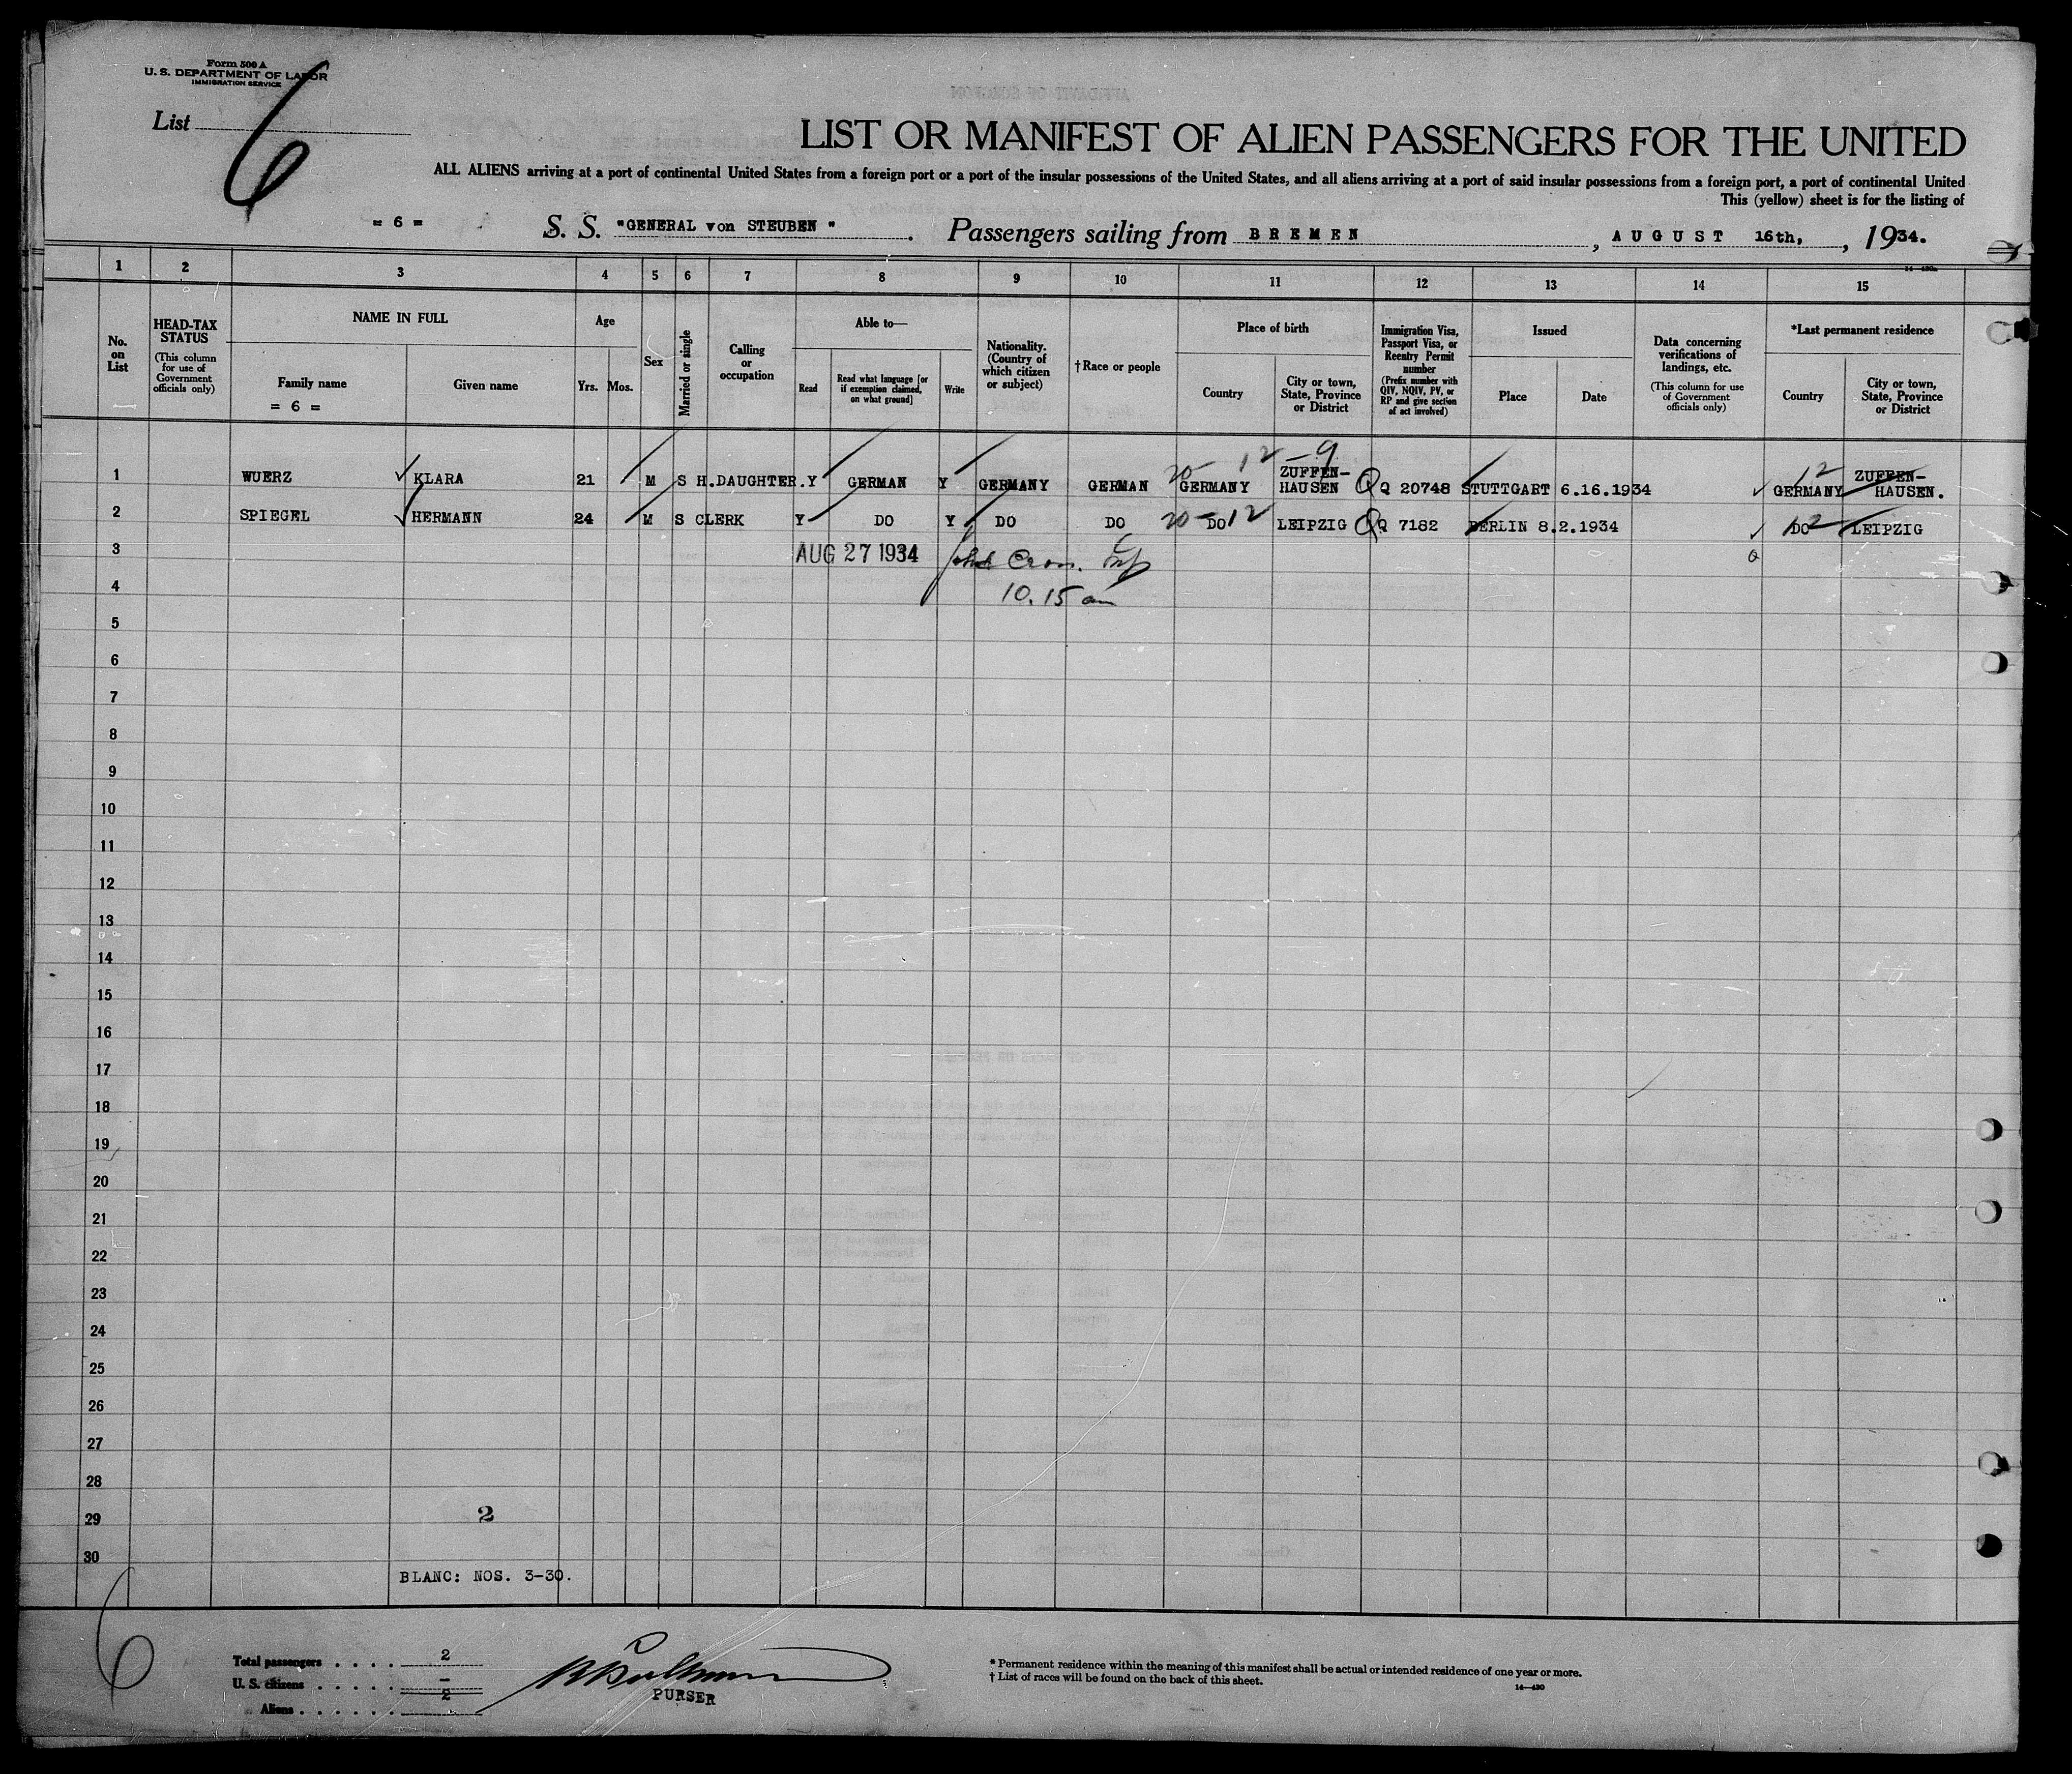 Form 500 A
U. S. DEPARTMENT OF LABOR
IMMIGRATION SERVICE
List 6
LIST OR MANIFEST OF ALIEN PASSENGERS FOR THE UNITED
ALL ALIENS arriving at a port of continental United States from a foreign port or a port of the insular possessions of the United States, and all aliens arriving at a port of said insular possessions from a foreign port, a port of continental United
This (yellow) sheet is for the listing of
= 6 = S. S. "GENERAL von STEUBEN ". Passengers sailing from BREMEN, AUGUST 16th, , 1934.
1 2 3 4 5 6 7 8 9 10 11 12 13 14 15
No. on List
HEAD-TAX STATUS
(This column for use of Government officials only)
NAME IN FULL
Family name
= 6 =
Given name
Age
Yrs. Mos.
Sex
Married or single
Calling or occupation
Able to—
Read
Read what language [or if exemption claimed, on what ground]
Write
Nationality. (Country of which citizen or subject)
†Race or people
Place of birth
Country
City or town, State, Province or District
Immigration Visa, Passport Visa, or Reentry Permit number
(Prefix number with QIV, NQIV, PV, or RP and give section of act involved)
Issued
Place
Date
Data concerning verifications of landings, etc.
(This column for use of Government officials only)
*Last permanent residence
Country
City or town, State, Province or District
20- 12 - 9
1 WUERZ KLARA 21 M S H.DAUGHTER. Y GERMAN Y GERMANY GERMAN GERMANY ZUFFEN-HAUSEN Q Q 20748 STUTTGART 6.16.1934 12 GERMANY ZUFFEN-HAUSEN.
2 SPIEGEL HERMANN 24 M S CLERK Y DO Y DO DO 20-DO 12 LEIPZIG Q Q 7182 BERLIN 8.2.1934 DO 12 LEIPZIG
3 AUG 27 1934
4 10.15 am
5
6
7
8
9
10
11
12
13
14
15
16
17
18
19
20
21
22
23
24
25
26
27
28
29 2
30
BLANC: NOS. 3-30.
6
Total passengers . . . . 2
U. S. citizens . . . . . –
Aliens . . . . . . 2
PURSER
* Permanent residence within the meaning of this manifest shall be actual or intended residence of one year or more.
† List of races will be found on the back of this sheet.
14—430